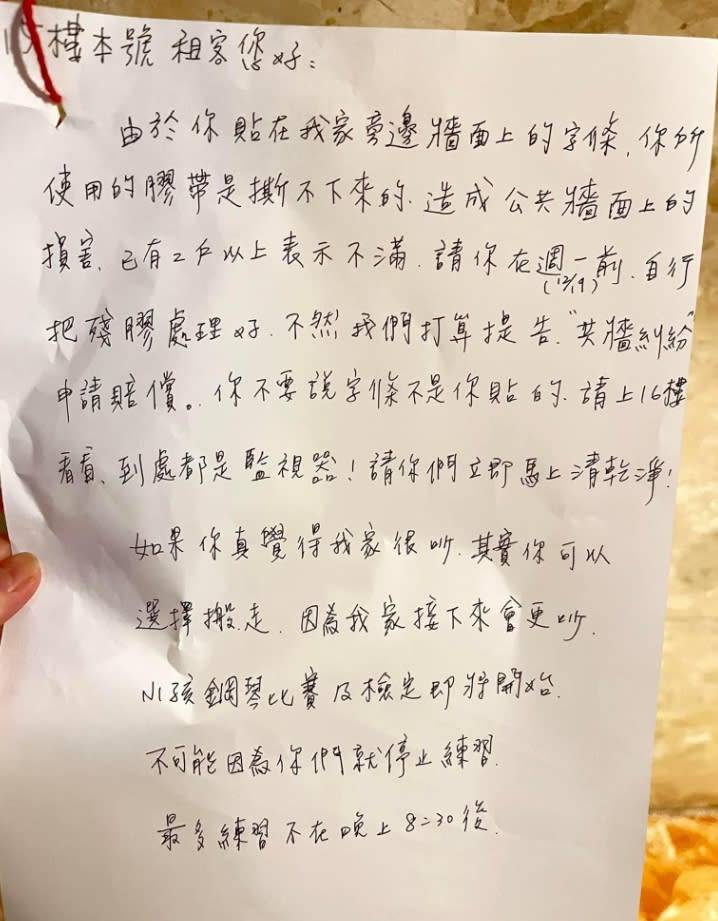 15樓本號 租客您好：
由於你貼在我家旁邊牆面上的字條，你所
使用的膠帶是撕不下來的，造成公共牆面上的
損害，已有2戶以上表示不滿，請你在週一前，自行
(12/19)
把殘膠處理好，不然我們打算提告，"共牆糾紛"
申請賠償。你不要說字條不是你貼的，請上16樓
看看，到處都是監視器！請你們立即馬上清乾淨！
如果你真覺得我家很吵，其實你可以
選擇搬走，因為我家接下來會更吵，
小孩鋼琴比賽及檢定即將開始，
不可能因為你們就停止練習，
最多練習不在晚上8:30後，